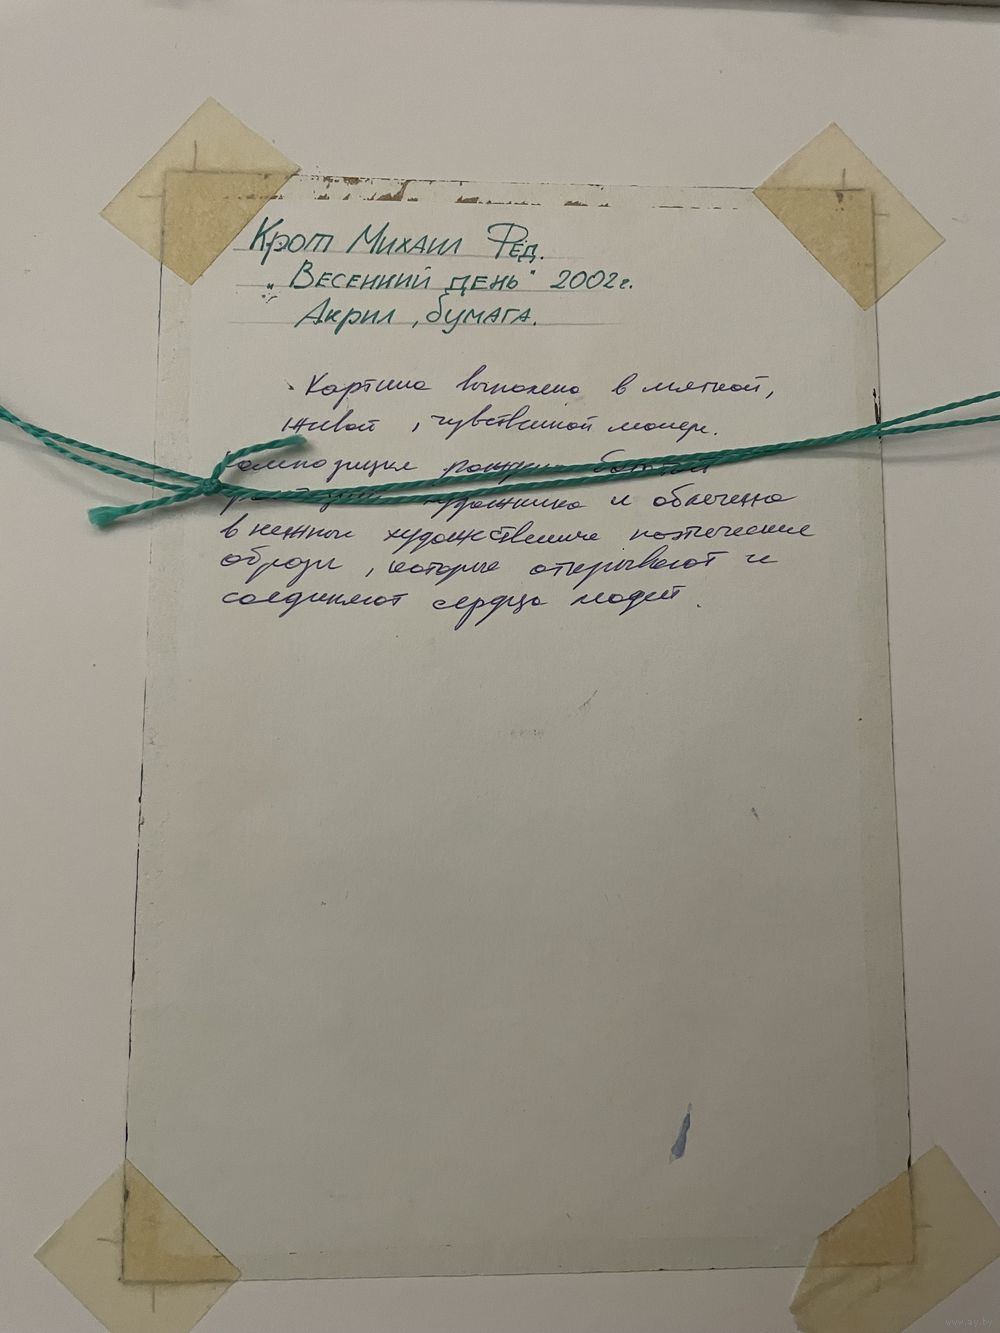 Крот Михаил Фёд.
"Весенний день" 2002г.
Акрил, бумага.
Картина выполнена в мягкой,
живой, чувственной манере.
Композиция рождена богатой
художника и облечена
в нежные художественные поэтические
образы, которые открывают и
соединяют сердца людей.
www.ay.by